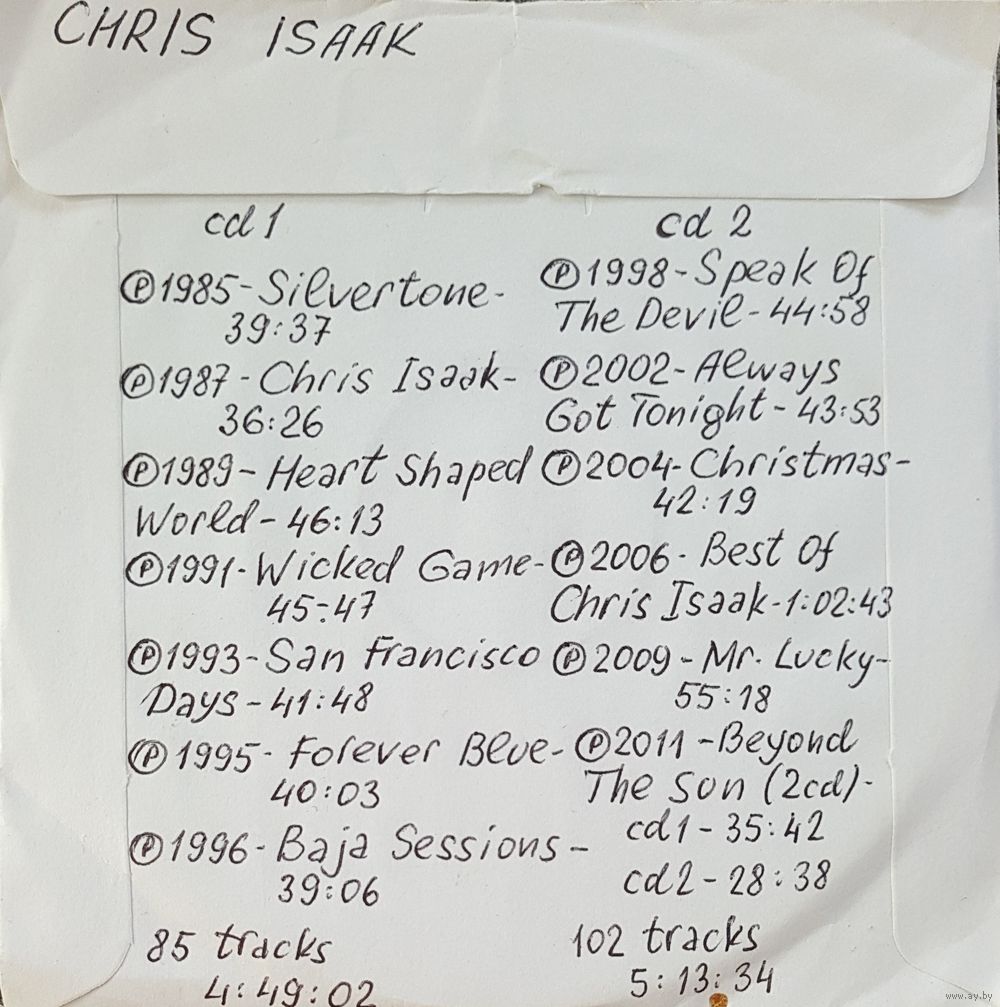 CHRIS ISAAK
cd 1
Ⓟ1985-Silvertone-
39:37
Ⓟ1987-Chris Isaak-
36:26
Ⓟ1989-Heart Shaped
World-46:13
Ⓟ1991-Wicked Game-
45:47
Ⓟ1993-San Francisco
Days-41:48
Ⓟ1995-Forever Blue-
40:03
Ⓟ1996-Baja Sessions-
39:06
85 tracks
4:49:02
cd 2
Ⓟ1998-Speak Of
The Devil-44:58
Ⓟ2002-Always
Got Tonight-43:53
Ⓟ2004-Christmas-
42:19
Ⓟ2006-Best Of
Chris Isaak-1:02:43
Ⓟ2009-Mr. Lucky-
55:18
Ⓟ2011-Beyond
The Sun (2cd)-
cd1-35:42
cd2-28:38
102 tracks
5:13:34
www.ay.by